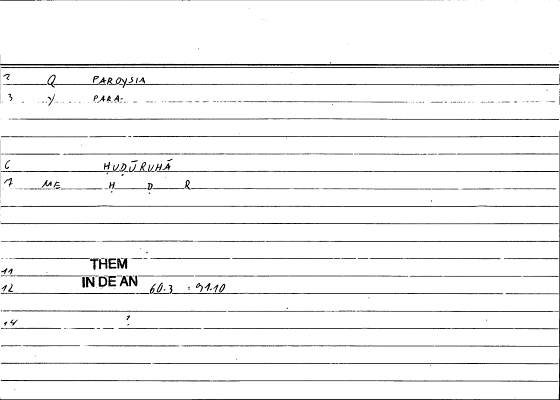 2 Q PAROYSIA
3 Y PARA-
6 ḤUḌŪRUHĀ
7 ME Ḥ Ḍ R
11 THEM
IN DE AN
12 60.3 = 91.10
14 1